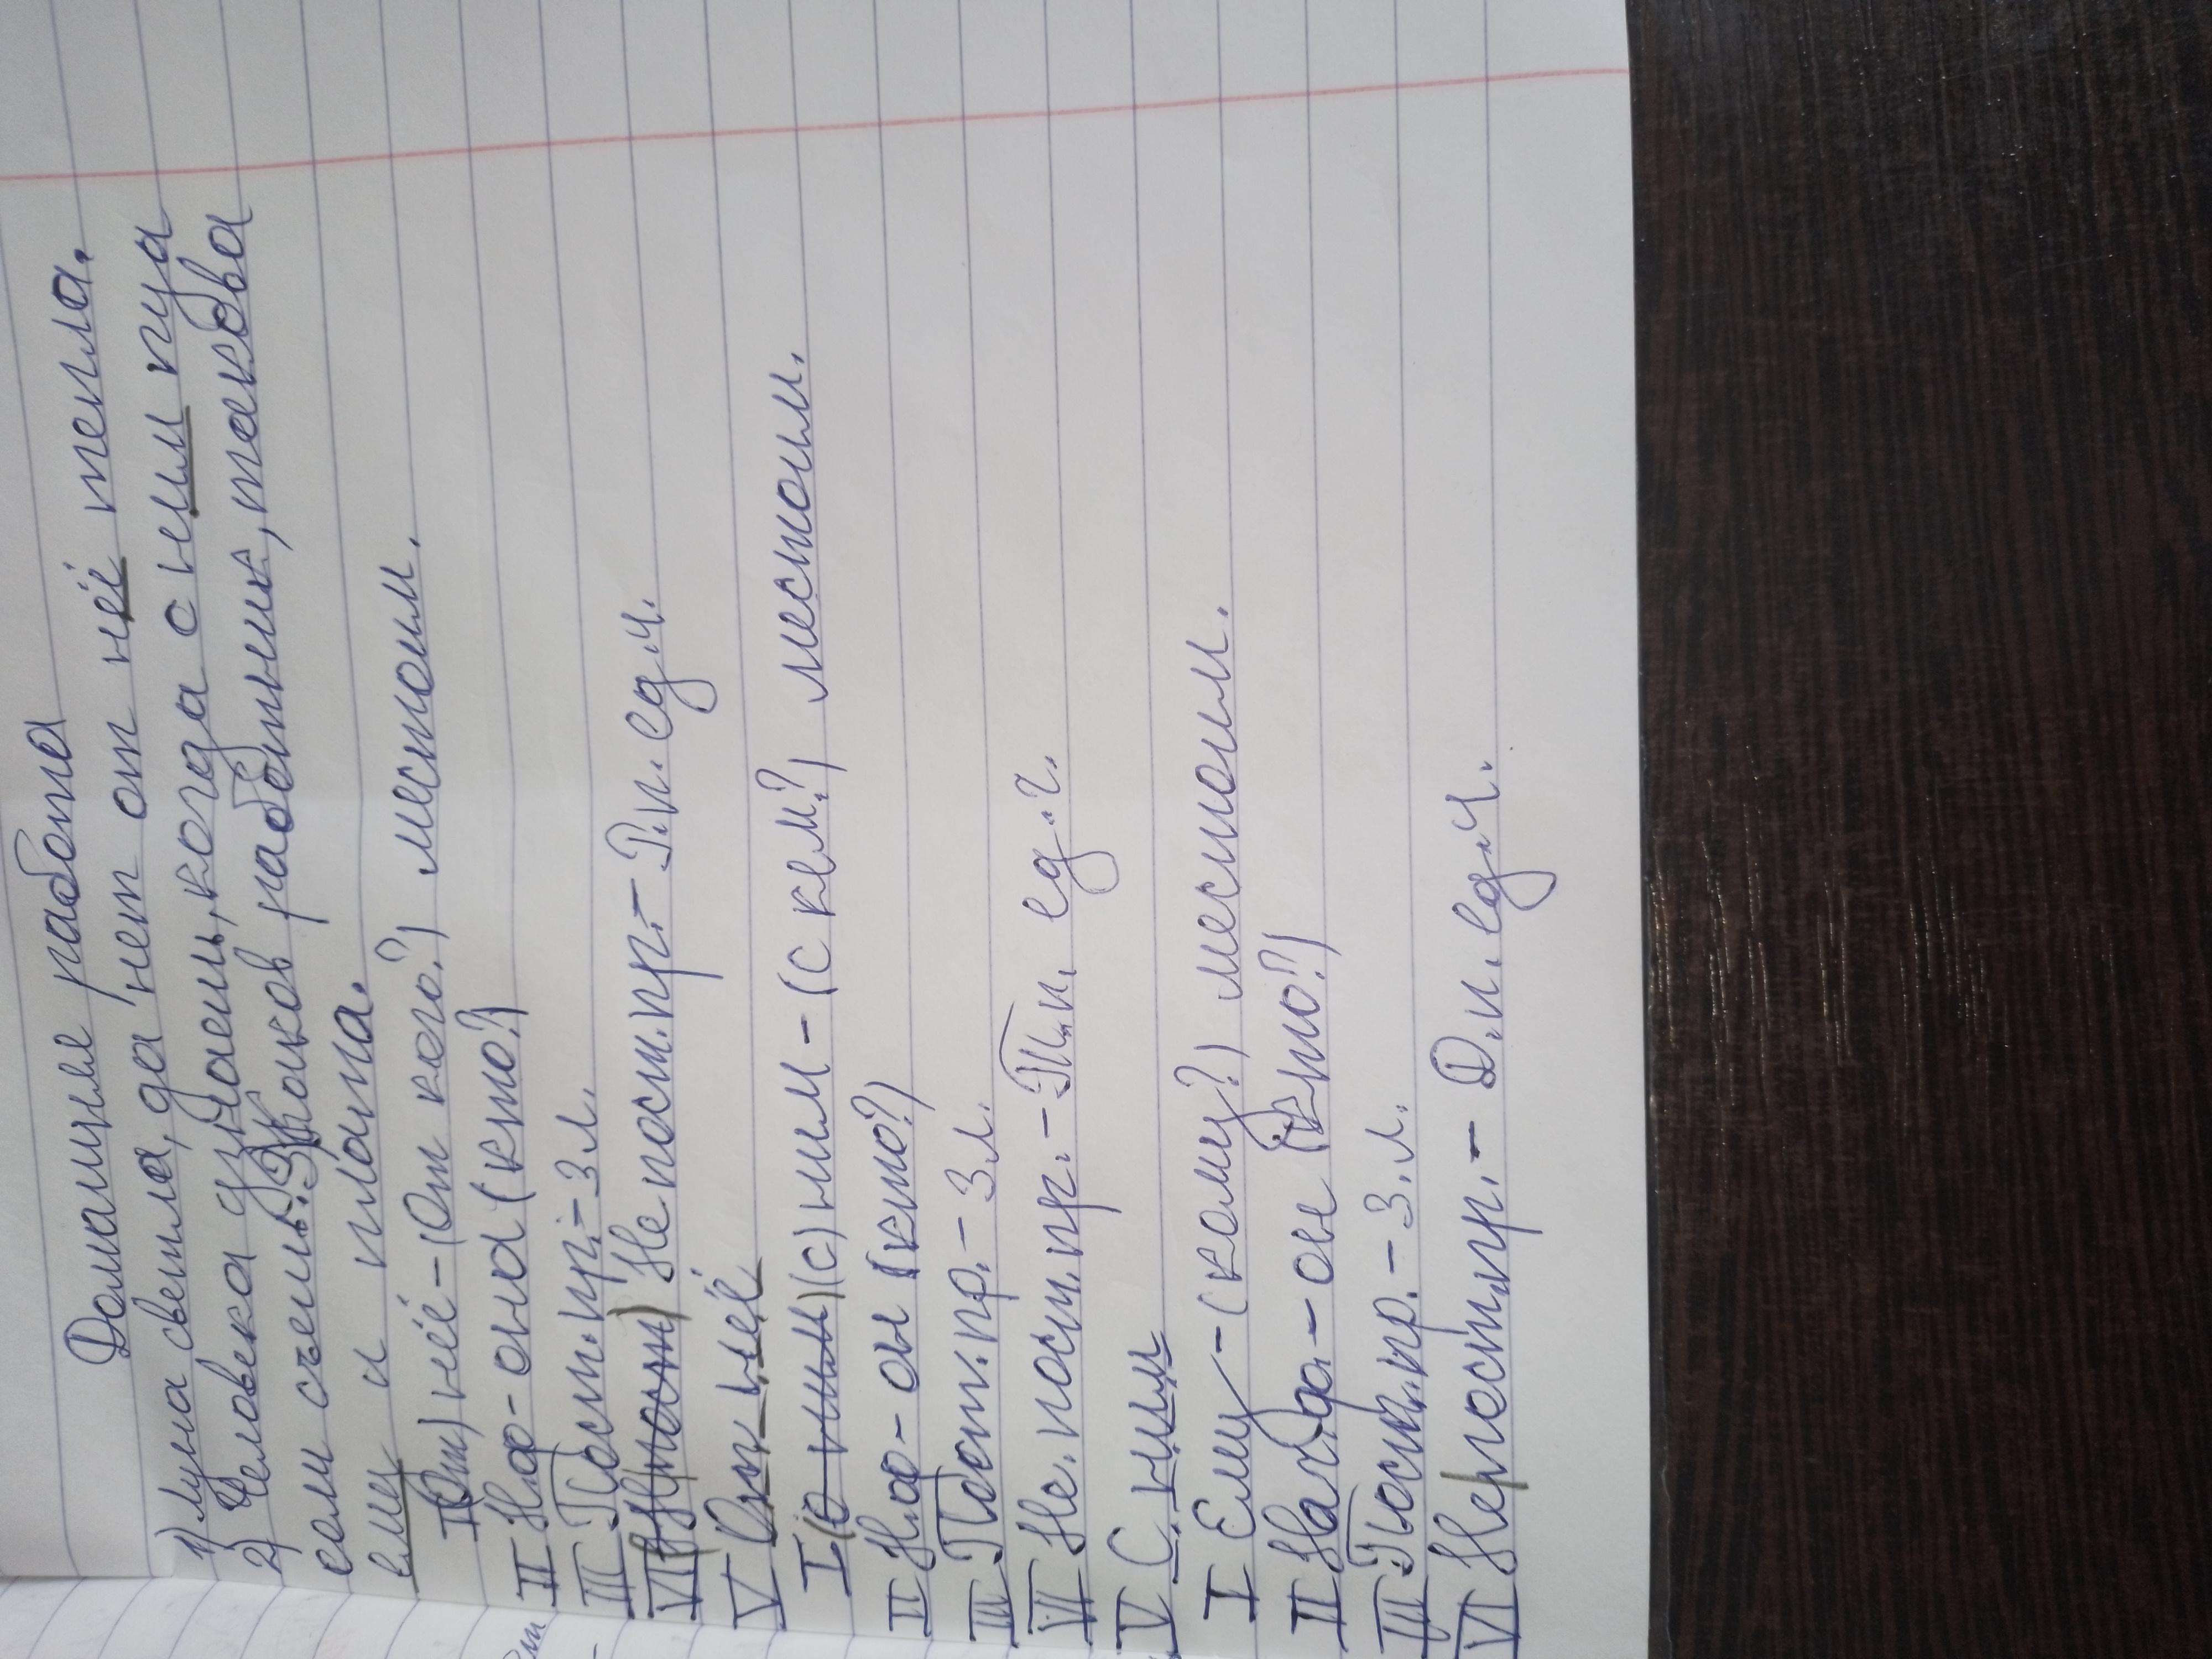 Домашняя работа
1) Луна светла, да нет от неё тепла.
2) Человека узнаешь, когда с ним пуд
соли съешь. 3) Каков работник, такова
ему и плата.
I (От) неё - (От кого?) местоим.
II Н.ф - она (кто?)
III Пост. пр. - 3 л.
Не пост. пр. - Р.п. ед.ч.
V От неё
I (с) ним - (с кем?) местоим.
II Н.ф - он (кто?)
III Пост. пр. - 3 л.
VI Не. пост. пр. - Т.п. ед.ч.
V С ним
I Ему - (кому?) местоим.
II Нач.ф. - он (кто?)
III Пост. пр. - 3. л.
VI Непост. пр. - Д.п. ед.ч.